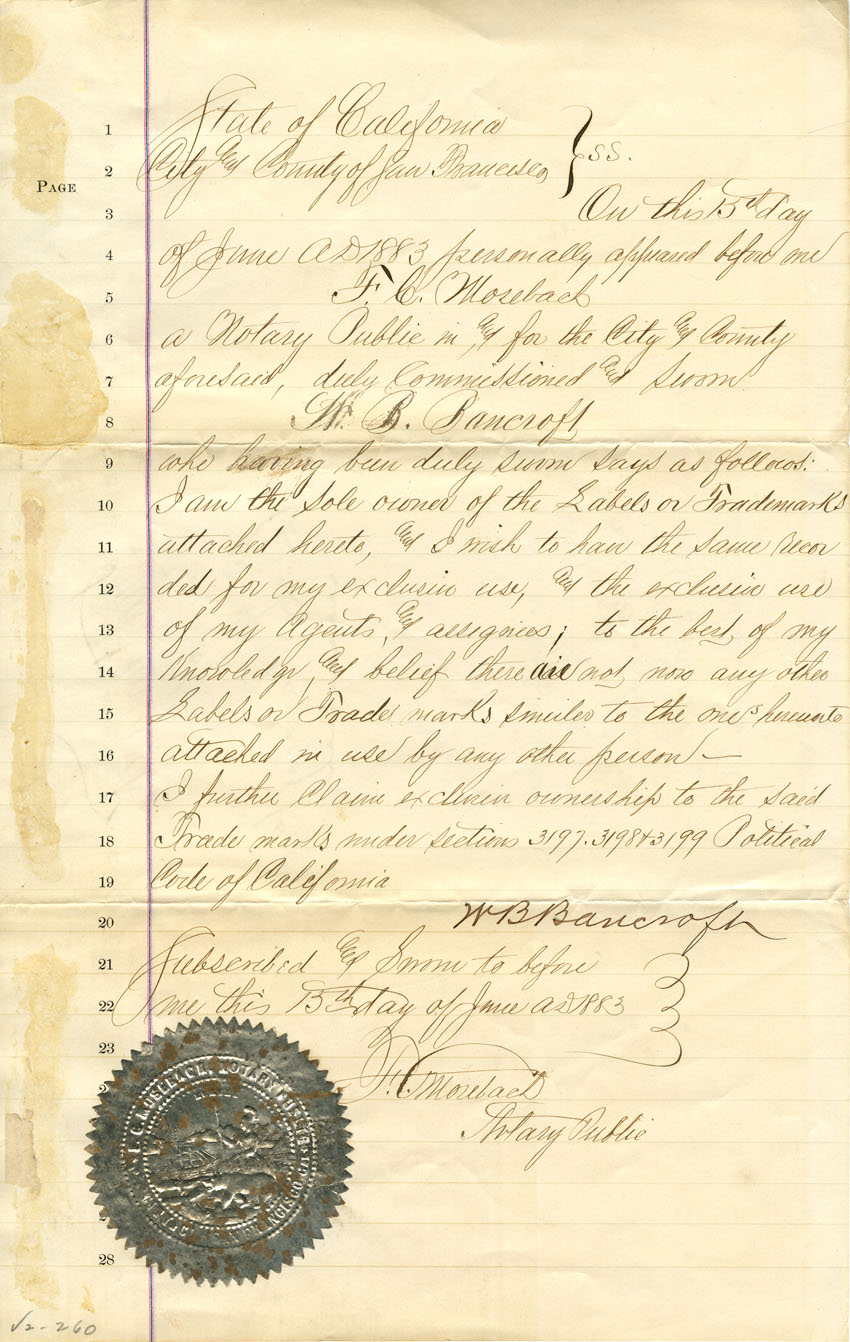 State of California
City and County of San Francisco } SS.
PAGE
On this 15th day
of June AD 1883 personally appeared before me
F. C. Mosebach
a Notary Public in and for the City and County
aforesaid, duly Commissioned and sworn
W. B. Bancroft
who having been duly sworn says as follows:
I am the sole owner of the Labels or Trademarks
attached hereto, and I wish to have the same recor
ded for my exclusive use, and the exclusive use
of my Agents, and assignees; to the best of my
Knowledge, and belief there are not now any other
Labels or Trade marks similar to the ones hereunto
attached in use by any other person —
I further Claim exclusive ownership to the said
Trade marks under sections 3197. 3198 & 3199 Political
Code of California
W B Bancroft
Subscribed and Sworn to before
me this 15th day of June AD 1883
F. C. Mosebach
Notary Public
1
2
3
4
5
6
7
8
9
10
11
12
13
14
15
16
17
18
19
20
21
22
23
28
F. C. MOSEBACH, NOTARY PUBLIC
SAN FRANCISCO
√2-260